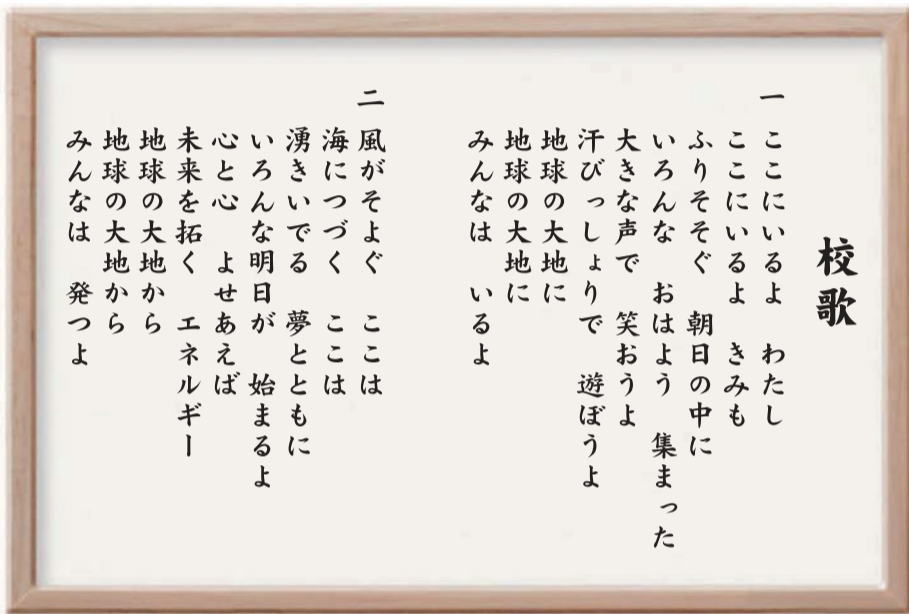 校歌
一 ここにいるよ わたし
ここにいるよ きみも
ふりそそぐ 朝日の中に
いろんな おはよう 集まった
大きな声で 笑おうよ
汗びっしょりで 遊ぼうよ
地球の大地に
地球の大地に
みんなは いるよ
二 風がそよぐ ここは
海につづく ここは
湧きいでる 夢とともに
いろんな明日が 始まるよ
心と心 よせあえば
未来を拓く エネルギー
地球の大地から
地球の大地から
みんなは 発つよ